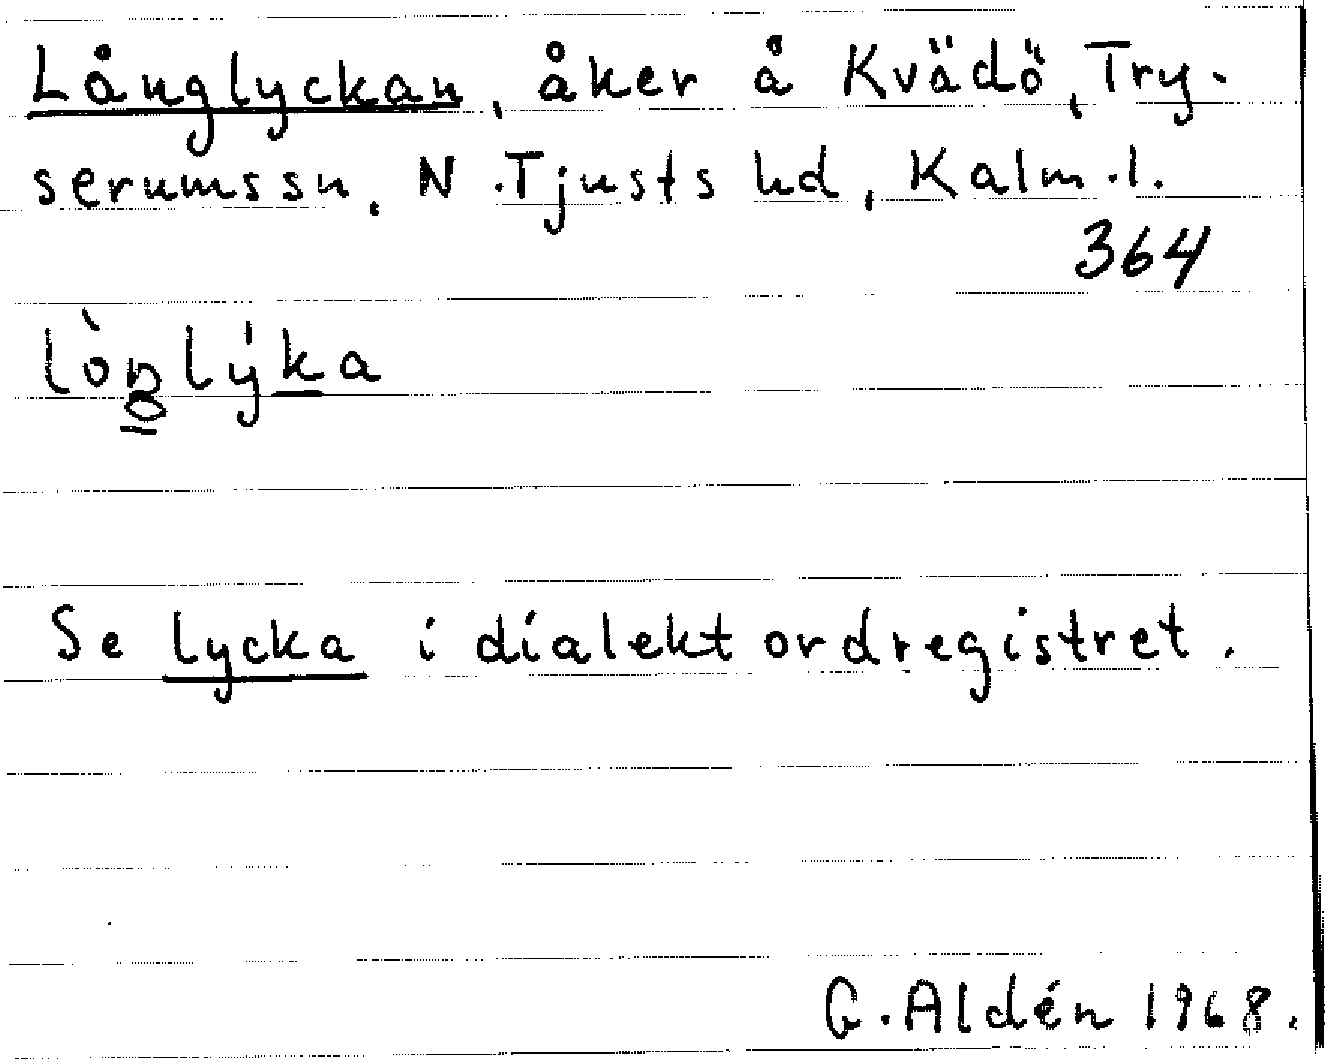 Långlyckan, åker å Kvädö, Try-
serumssn, N.Tjusts hd, Kalm.l.
364
lòŋlýka
Se lycka i dialektordregistret.
G. Aldén 1968.